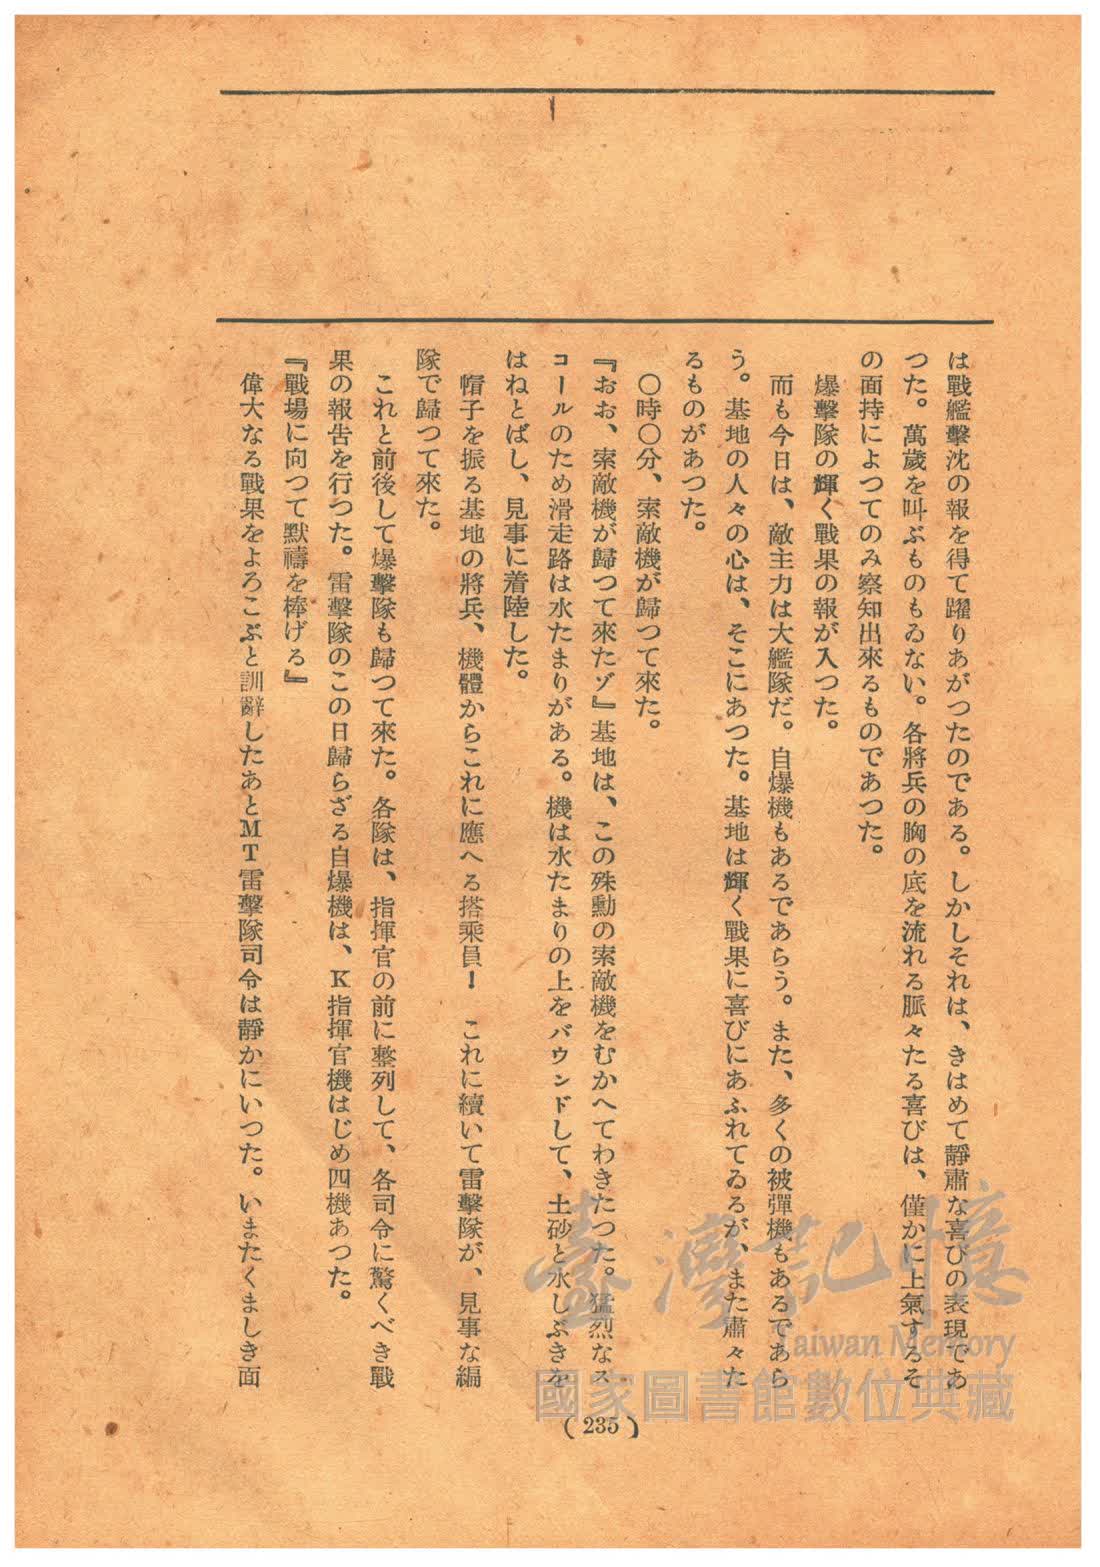 は戰艦擊沈の報を得て躍りあがつたのである。しかしそれは、きはめて靜肅な喜びの表現であ
つた。萬歲を叫ぶものもゐない。各將兵の胸の底を流れる脈々たる喜びは、僅かに上氣するそ
の面持によつてのみ察知出來るものであつた。
爆擊隊の輝く戰果の報が入つた。
而も今日は、敵主力は大艦隊だ。自爆機もあるであらう。また、多くの被彈機もあるであら
う。基地の人々の心は、そこにあつた。基地は輝く戰果に喜びにあふれてゐるが、また肅々た
るものがあつた。
〇時〇分、索敵機が歸つて來た。
『おお、索敵機が歸つて來たゾ』基地は、この殊勳の索敵機をむかへてわきたつた。猛烈なス
コールのため滑走路は水たまりがある。機は水たまりの上をバウンドして、土砂と水しぶきを
はねとばし、見事に着陸した。
帽子を振る基地の將兵、機體からこれに應へる搭乘員！　これに續いて雷擊隊が、見事な編
隊で歸つて來た。
これと前後して爆擊隊も歸つて來た。各隊は、指揮官の前に整列して、各司令に驚くべき戰
果の報告を行つた。雷擊隊のこの日歸らざる自爆機は、K指揮官機はじめ四機あつた。
『戰場に向つて默禱を捧げる』
偉大なる戰果をよろこぶと訓辭したあとMT雷擊隊司令は靜かにいつた。いまたくましき面
(235)
臺灣記憶
Taiwan Memory
國家圖書館數位典藏